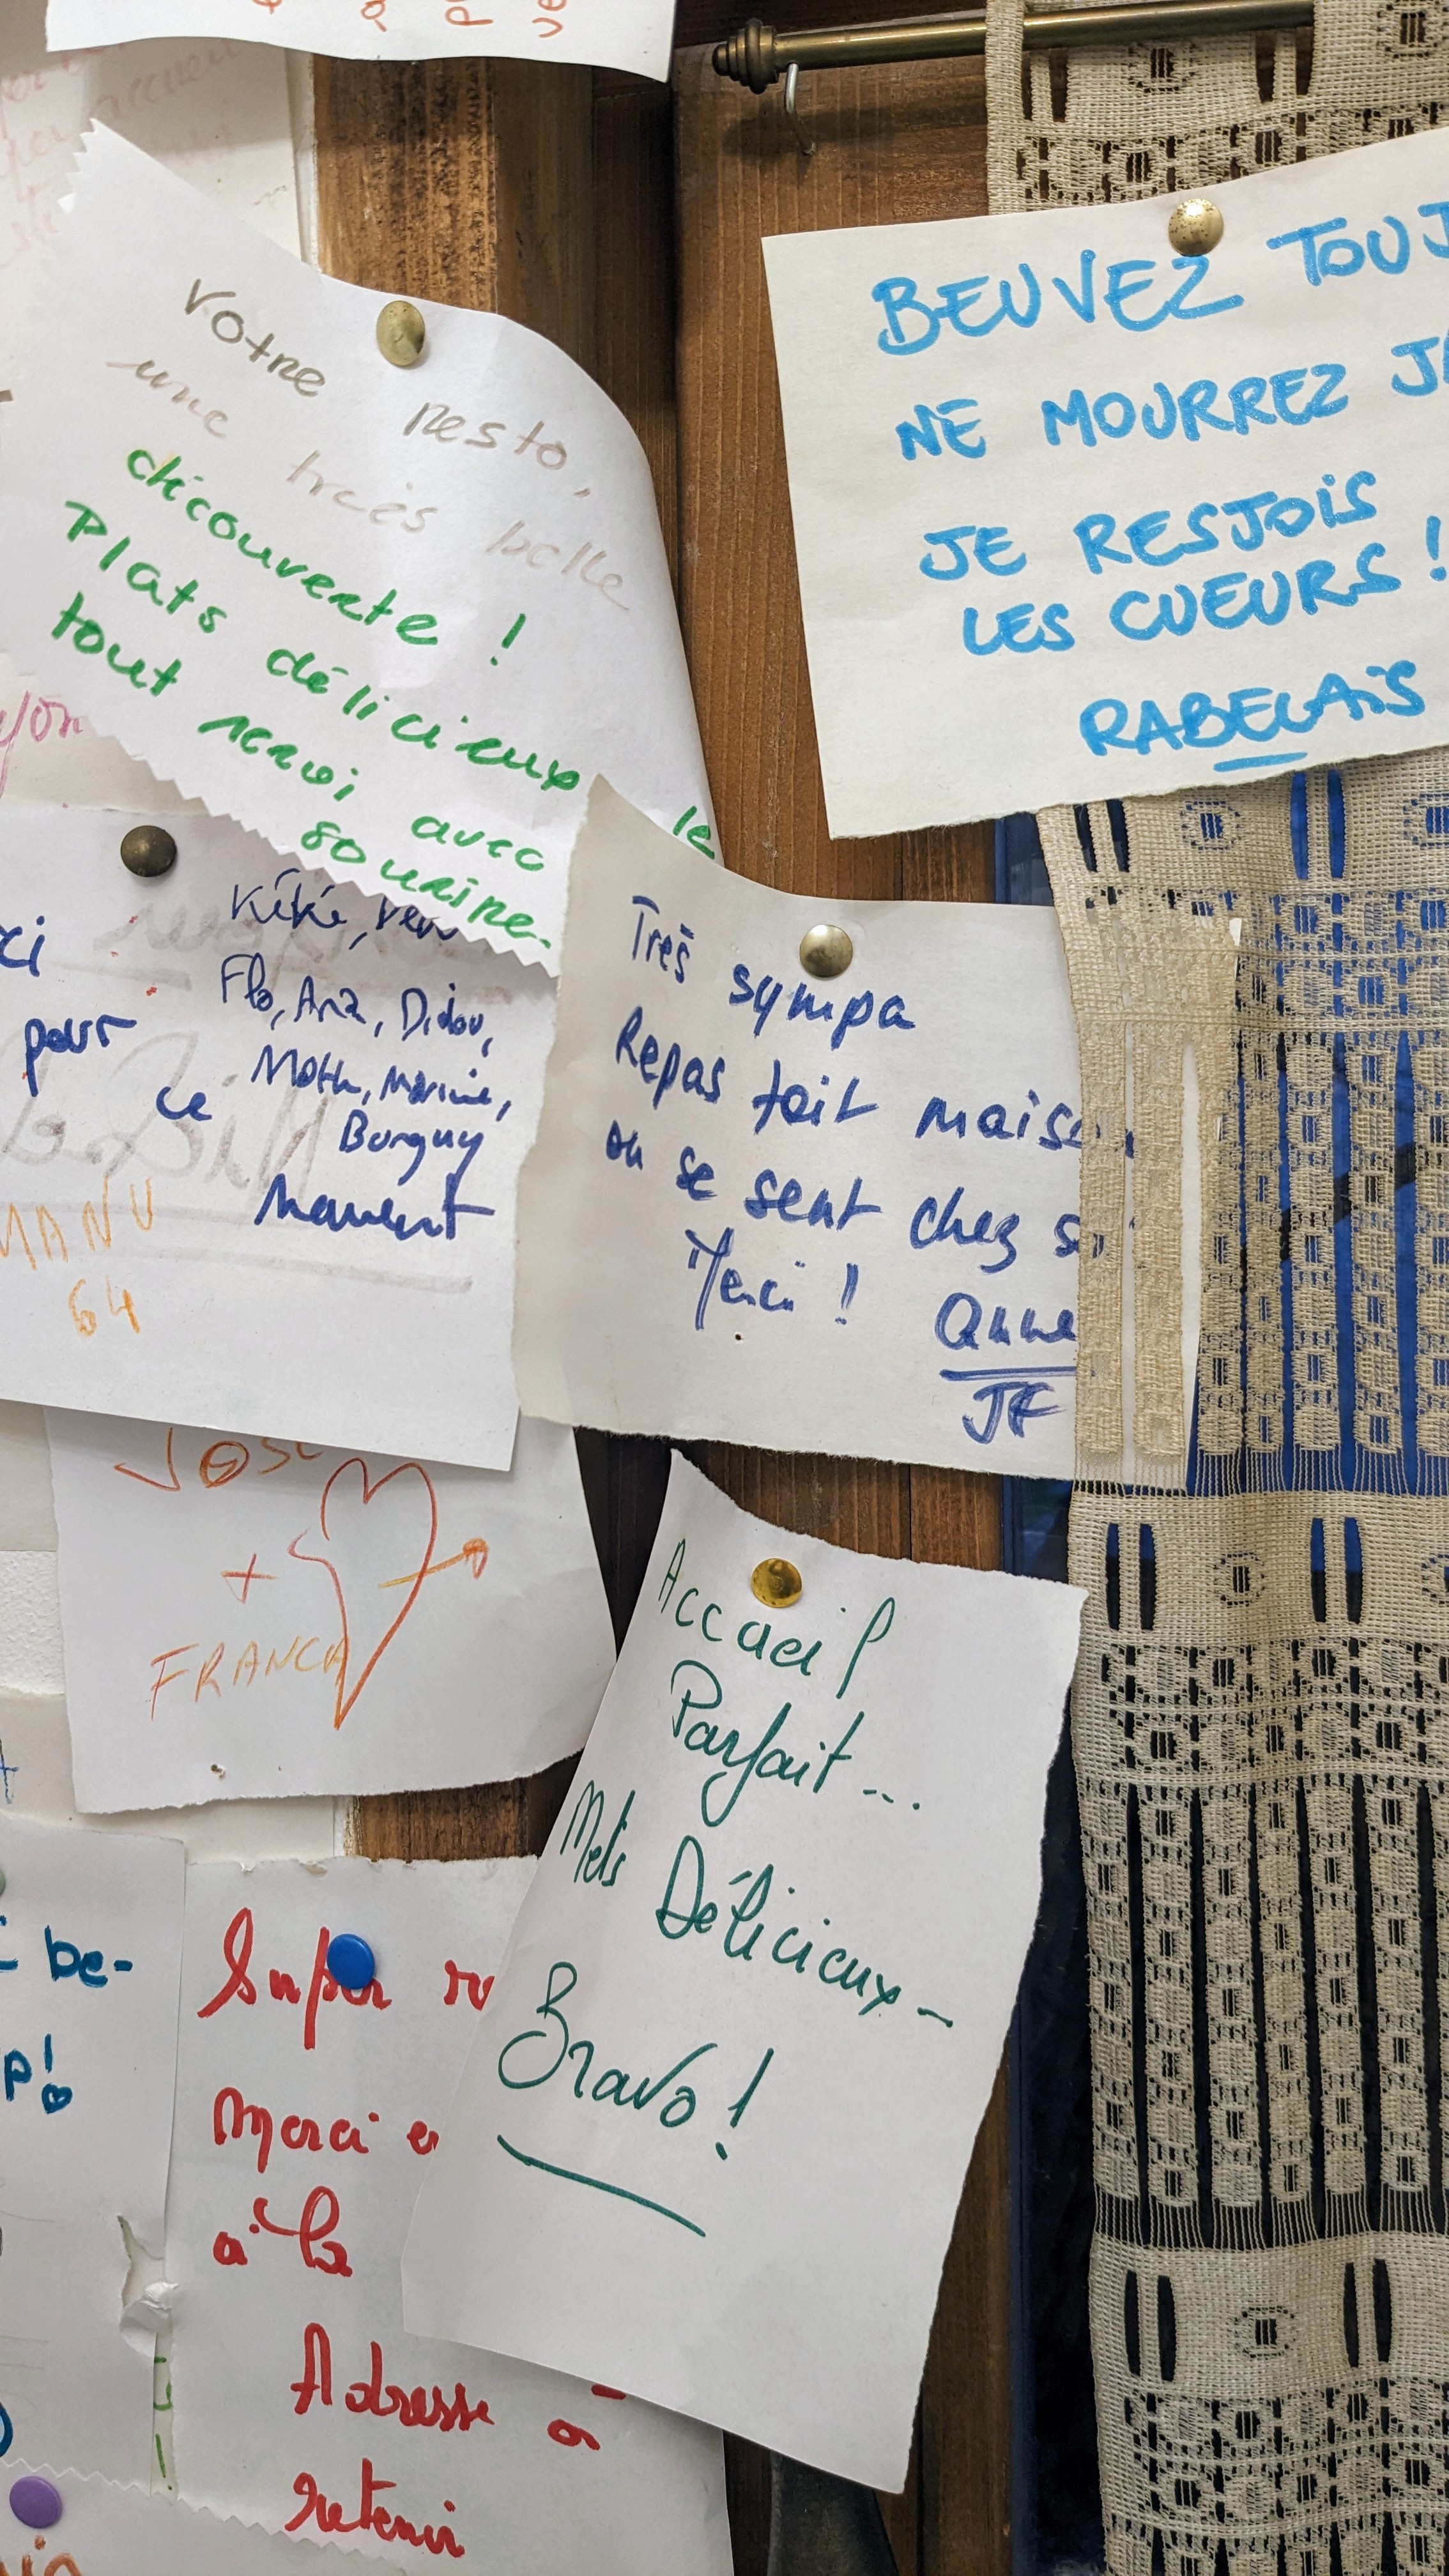 BEUVEZ TOUJ
NE MOURREZ JA
JE RESJOIS
LES CUEURS !
RABELAIS
Votre resto,
une très belle
découverte !
Plats délicieux le
tout servi avec
sourire.
Kéké,
Flo, Ana, Didou,
Marine,
Borguy
ci
pour
ce
moment
MANU
64
Très sympa
Repas fait maiso
on se sent chez s
Merci !
Anne
JF
JOSE
+
FRANCA
Accueil
Parfait ...
Mets
Délicieux -
Bravo !
be-
p!
Super
Merci e
à la
Adresse à
retenir